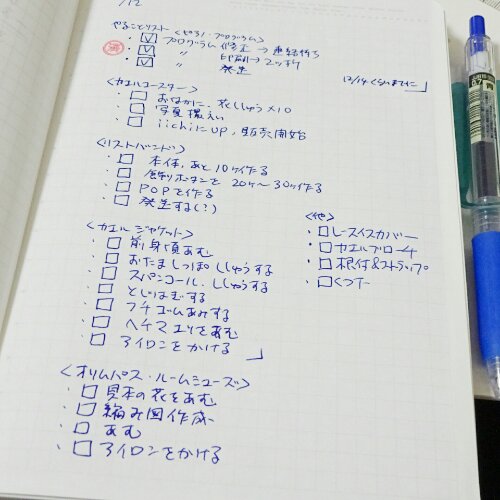 /12
やることリスト <ピアノ・プログラム>
・☑ プログラム修正→連絡待ち
・☑ 〃 印刷→2ツ折
・☑ 〃 発送
12/14くらいまでに
<カエルコースター>
・□ おなかに、花ししゅう×10
・□ 写真撮影
・□ iichiにUP、販売開始
<リストバンド>
・□ 本体、あと10ヶ作る
・□ ボタンを 20ヶ〜30ヶ作る
・□ POPを作る
・□ 発送する(?)
<カエルジャケット>
・□ 前身頃あむ
・□ おたましっぽ ししゅうする
・□ スパンコール、ししゅうする
・□ とじはぎする
・□ フチゴムあみする
・□ ヘチマエリをあむ
・□ アイロンをかける
<他>
・□ レースイスカバー
・□ カエルブローチ
・□ 根付&ストラップ
・□ くつ下
<オリムパス・ルームシューズ>
・□ 見本の花をあむ
・□ 編み図作成
・□ あむ
・□ アイロンをかける
0.7